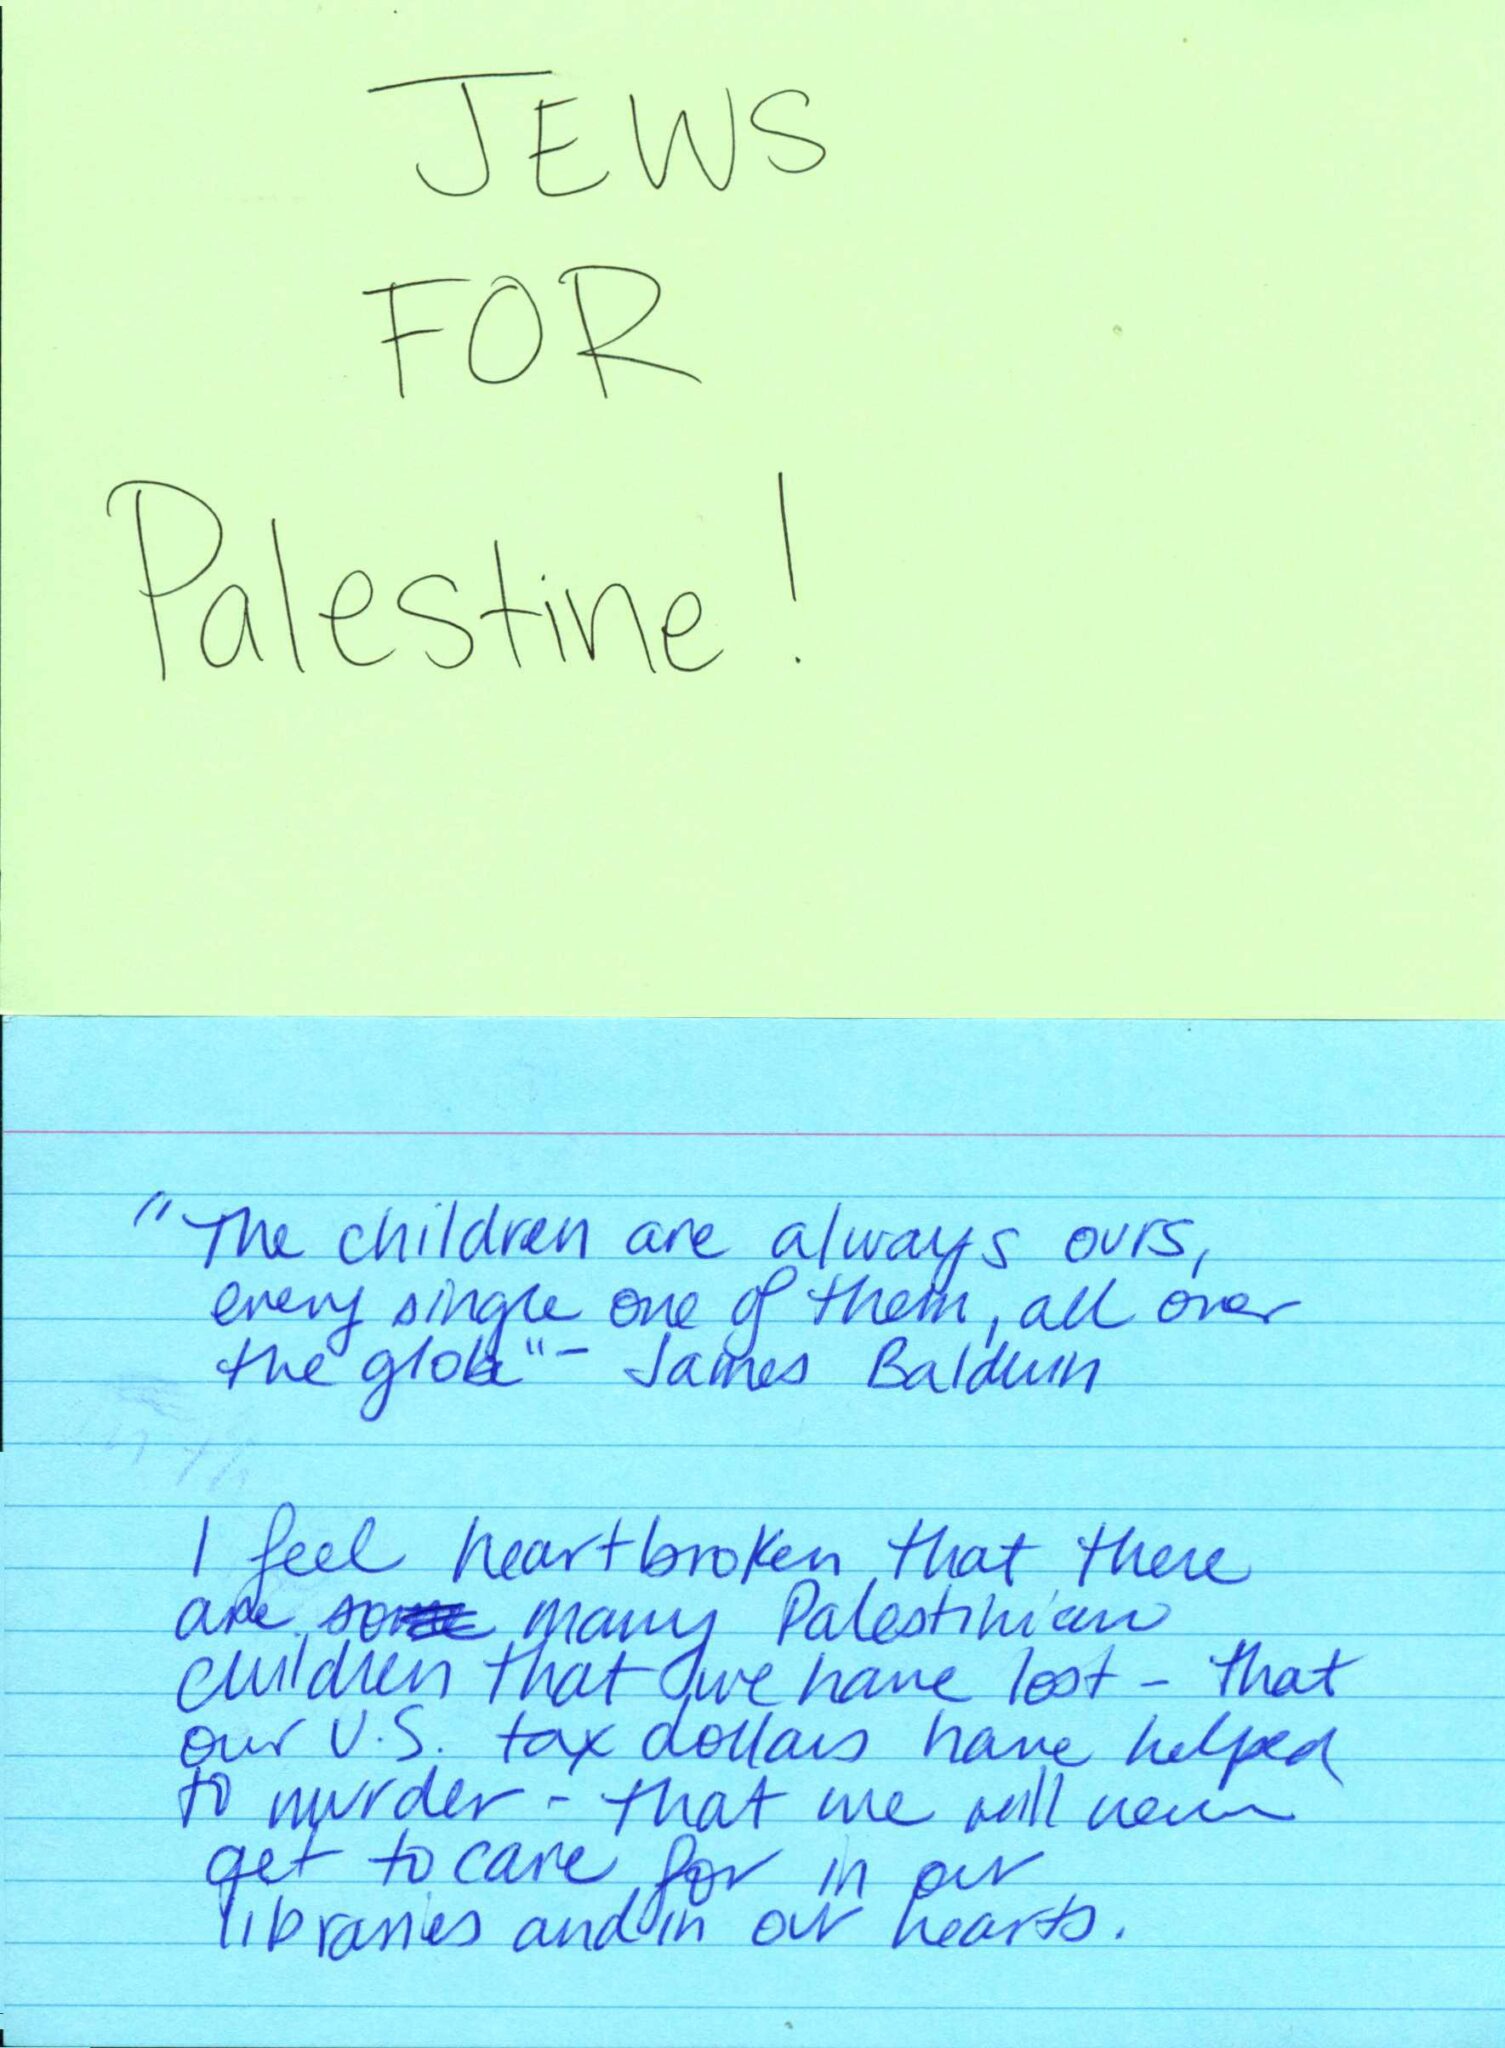 JEWS
FOR
Palestine!
"The children are always ours,
every single one of them, all over
the globe" - James Baldwin
I feel heartbroken that there
are some many Palestinian
children that we have lost - that
our U.S. tax dollars have helped
to murder - that we will never
get to care for in our
libraries and in our hearts.